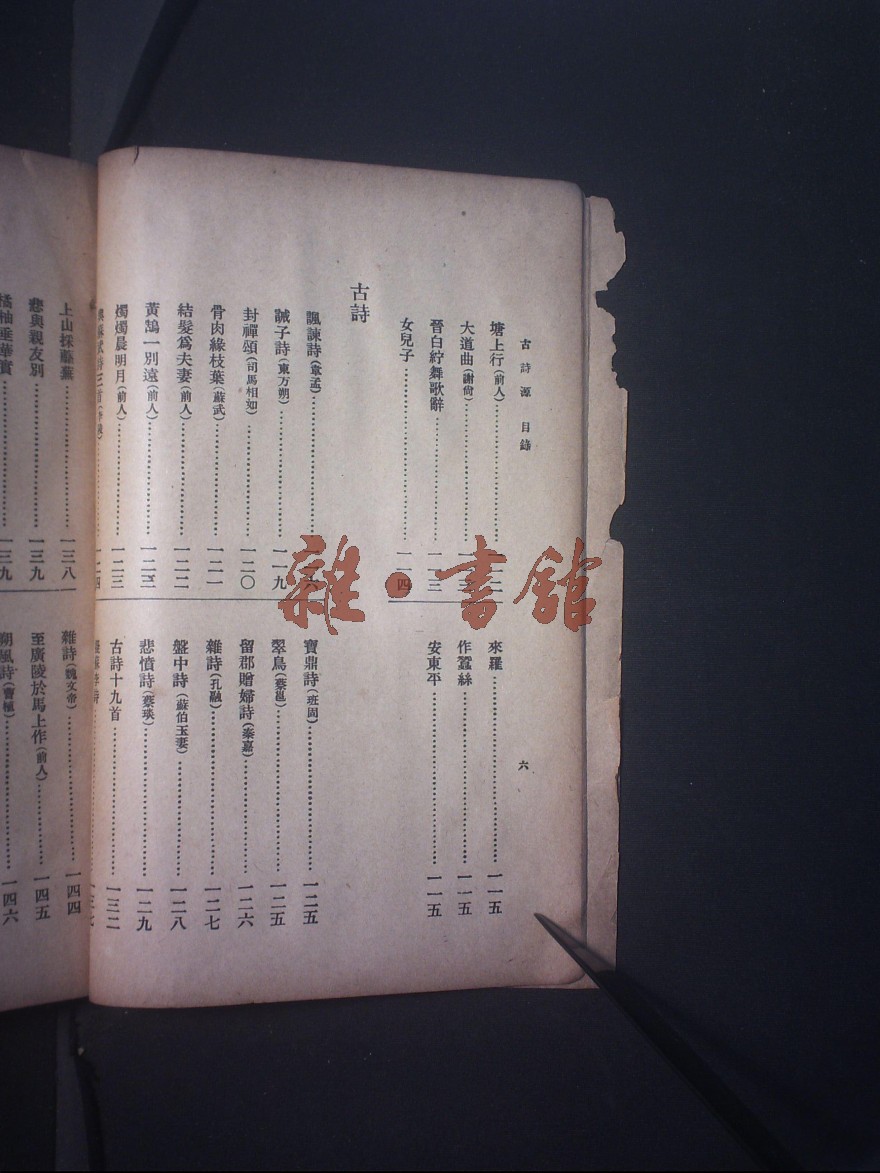 古詩源 目錄
六
塘上行(前人)……
大道曲(謝尙)……
晉白紵舞歌辭……一一三
女兒子……一一四
來羅……一一五
作蠶絲……一一五
安東平……一一五
古詩
諷諫詩(韋孟)……
誡子詩(東方朔)……一一九
封禪頌(司馬相如)……一二〇
骨肉緣枝葉(蘇武)……一二一
結髮爲夫妻(前人)……一二二
黃鵠一別遠(前人)……一二三
燭燭晨明月(前人)……一二三
詩三首……一二四
寶鼎詩(班固)……一二五
翠鳥(蔡邕)……一二五
留郡贈婦詩(秦嘉)……一二六
雜詩(孔融)……一二七
盤中詩(蘇伯玉妻)……一二八
悲憤詩(蔡琰)……一二九
古詩十九首……一三二
詩……一三七
上山採蘼蕪……一三八
悲與親友別……一三九
橘柚垂華實……一三九
雜詩(魏文帝)……一四四
至廣陵於馬上作(前人)……一四五
朔風詩(曹植)……一四六
雜·書館